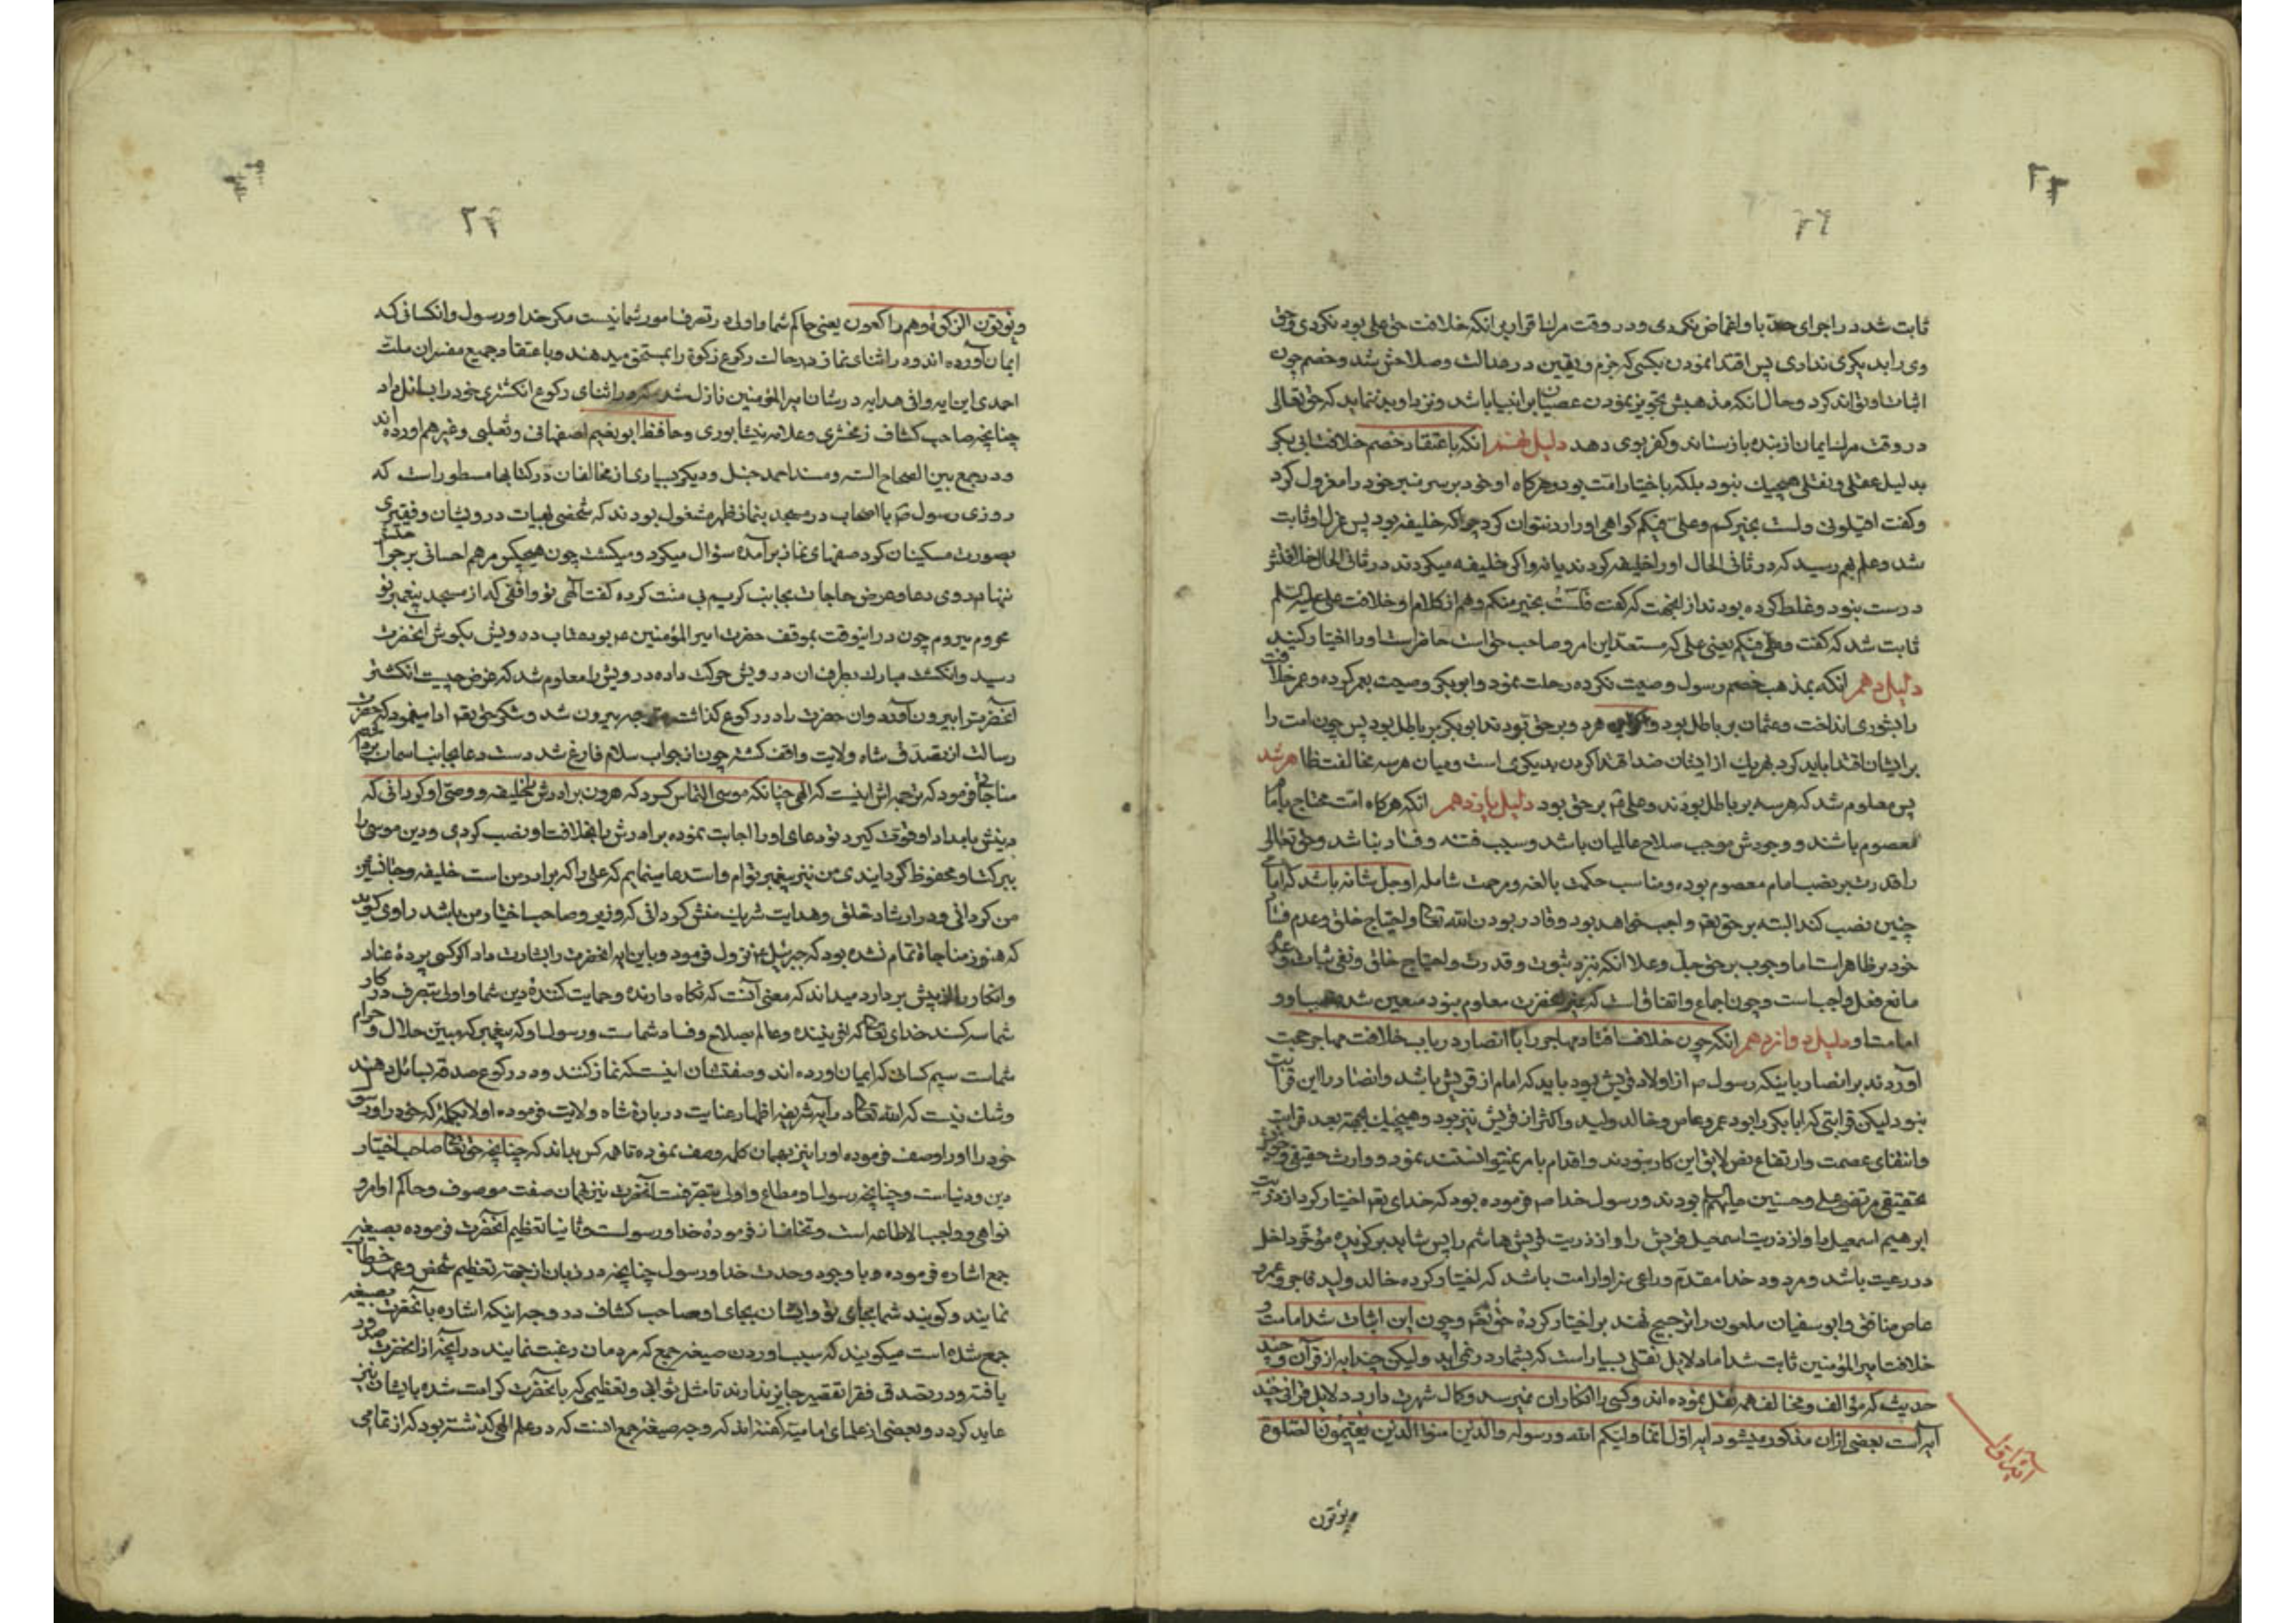 ثابت شد در اجرای حد با و اغماض نکردی و در وقت مرك اقرار بر انکه خلافت حق علی بود نکردی و حق
وی را بدیکری نداری پس اقتدا نمودن بکسی که جزم و یقین در عدالت و صلاحش شد و خصم چون
اثبات او تواند کرد و حال انکه مذهبش تجویز نمودن عصیان بر انبیا باشد و نزد او می نماید که حق تعالی
در وقت مرك ایمان از بنده باز ستاند و کفر بوی دهد دلیل نهم انکه باعتقاد خصم خلافت ابی بکر
بدلیل عقلی و نقلی هیچیك نبود بلکه باختیار امت بود و هرکاه او خود بر سر منبر خود را معزول کرد
و کفت اقیلونی ولست بخیرکم وعلی فیکم کواهی او را رد نتوان کرد چرا که خلیفه بود پس عزل او ثابت
شد و علم بهم رسید که در ثانی الحال او را خلیفه کردند یا نه و اکر خلیفه میکردند در ثانی الحال خلافتش
درست نبود و غلط کرده بودند از اینجهت که کفت فلست بخیر منکم و هم از کلام او خلافت علی علیه السلم
ثابت شد که کفت وعلی فیکم یعنی علی که مستعد این امر و صاحب حق است حاضر است او را اختیار کنید
دلیل دهم انکه بمذهب خصم رسول وصیت نکرده رحلت نمود و ابو بکر وصیت بعمر کرده و عمر خلافت
را بشوری انداخت و عثمان بر باطل بود و هر دو بر حق بودند ابو بکر بر باطل بود پس چون امت را
بر ایشان اقتدا باید کرد بهر یك از ایشان ضد اقتدا کردن بدیکری است و میان هر سه مخالفت ظاهر شد
پس معلوم شد که هر سه بر باطل بودند و علی بر حق بود دلیل یازدهم انکه هرکاه امت محتاج بامام
معصوم باشند و وجودش موجب صلاح عالمیان باشد و سبب فتنه و فساد نباشد و حق تعالی
را قدرت بر نصب امام معصوم بوده و مناسب حکمت بالغه و مرحمت شامله او جل شانه باشد که امامی
چنین نصب کند البته بر حق تعالی واجب خواهد بود و قادر بودن الله تعالی و احتیاج خلق و عدم فساد
خود بر ظاهر است اما وجوب بر حق جل و علا انکه نزد ثبوت و قدرت و احتیاج خلق و نفی و عدم
مانع فعل واجب است و چون اجماع و اتفاق است که غیر انحضرت معلوم نبود معین شد و
امامت او دلیل دوازدهم انکه چون خلاف افتاد مهاجر را با انصار در باب خلافت مهاجر حجت
آوردند بر انصار باینکه رسول ص از اولاد قریش بود باید که امام از قریش باشد و انصار را این قرابت
نبود لیکن قرابتی که ابا بکر را بود عمرو عاص و خالد ولید و اکثر از قریش نیز بود و هیچیك بجهة بعد قرابت
و انتفای عصمت و ارتفاع نص لایق این کار نبودند و اقدام بامر نمیتوانستند نمود و وارث حقیقی و
تحقیقی مرتضی علی و حسنین علیهم السلم بودند و رسول خدا ص فرموده بود که خدای تعالی اختیار کرد از ذریت
ابرهیم اسمعیل را و از ذریت اسمعیل قریش را و از ذریت قریش هاشم را پس شاید برکزیده مؤخر داخل
در رعیت باشد و مردود خدا مقدم و راعی سزاوار امت باشد که اختیار کرده خالد ولید فاجر و عمرو
عاص منافق و ابو سفیان ملعون را ترجیح نهند بر اختیار کرده حق تعالی و چون این اثبات شد امامت و
خلافت امیر المؤمنین ثابت شد اما دلایل نقلی بسیار است که بشمار در نمی اید و لیکن چند ایه از قرآن و چند
حدیث که مؤالف و مخالف همه نقل نموده اند و کسی را انکار ان نمیرسد و کمال شهرت دارد دلایل قرانی چند
ایه است بعضی از ان مذکور میشود ایه اول انما ولیکم الله ورسوله والذین امنوا الذین یقیمون الصلوة
ویؤتون
ویؤتون الزکوة وهم راکعون یعنی حاکم شما و اولی در تصرف امور شما نیست مکر خدا و رسول و انکسانی که
ایمان آورده اند و در اثنای نماز در حالت رکوع زکوة را بمستحق میدهند و باعتقاد جمیع مفسران ملت
احمدی این ایه وافی هدایه در شان امیر المؤمنین نازل شد که در اثنای رکوع انکشتری خود را بسائل داد
چنانچه صاحب کشاف زمخشری و علامه نیشابوری و حافظ ابو نعیم اصفهانی و ثعلبی و غیرهم اورده اند
و در جمع بین الصحاح الستة و مسند احمد حنبل و دیکر بسیاری از مخالفان در کتابها مسطور است که
روزی رسول ص با اصحاب در مسجد بنماز ظهر مشغول بودند که شخصی بهیات درویشان و فقیری
بصورت مسکینان کرد صفهای نماز برآمده سؤال میکرد و میکشت چون هیچکس مرهم احسانی بر جراحتش
ننهاد روی دعا و عرض حاجات بجانب کریم بی منت کرده کفت الهی تو واقفی که از مسجد پیغمبر تو
محروم میروم چون در اینوقت بموقف حضرت امیر المؤمنین ع بود عتاب درویش بکوش آنحضرت
رسید و انکشت مبارك بطرف ان درویش حرکت داده درویش را معلوم شد که غرض چیست انکشتر
آنحضرت را بیرون آورد و ان حضرت را در رکوع کذاشت بیرون شد و شکر حق تعالی ادا مینمود که حضرت
رسالت از تصدق شاه ولایت واقف کشته چون از جواب سلام فارغ شد دست دعا بجانب اسمان
مناجاتی فرمود که ترجمه اش اینست که الهی چنانکه موسی التماس کرد که هرون برادرش را خلیفه و وصی او کردانی که
دینش بامداد او قوت کیرد تو دعای او را اجابت نموده برادرش را بخلافت او نصب کردی و دین موسی را
ببرکت او محفوظ کردانیدی من نیز پیغمبر توام و استدعا مینمایم که علی را که برادر من است خلیفه و جانشین
من کردانی و در ارشاد خلق و هدایت شریك منش کردانی که وزیر و صاحب اختیار من باشد راوی کوید
که هنوز مناجاة تمام نشده بود که جبرئیل ع نزول فرمود و باین ایه انحضرت را بشارت داد اکر کسی پردهٔ عناد
و انکار را از پیش بردارد میداند که معنی آنست که نکاه دارنده و حمایت کنندهٔ دین شما و اولی بتصرف در کار
شما سه کسند خدای تعالی که افریننده و عالم بصلاح و فساد شماست و رسول او که پیغمبر که مبین حلال و حرام
شماست سیم کسانی که ایمان اورده اند و صفتشان اینست که نماز کنند و در رکوع صدقه بسائل دهند
و شك نیست که الله تعالی در آیه شریفه اظهار عنایت در بارهٔ شاه ولایت فرموده اولا بکلمهٔ که خود را و رسول
خود را او را وصف فرموده او را نیز بهمان کلمه وصف نموده تا همه کس بداند که چنانچه حق تعالی صاحب اختیار
دین و دنیاست و چنانچه رسول او مطاع و اولی بتصرفست آنحضرت نیز بهمان صفت موصوف و حاکم اوامر و
نواهی و واجب الاطاعه است و تخلف از فرمودهٔ خدا و رسولست و ثانیا تعظیم آنحضرت فرموده بصیغه
جمع اشاره فرموده و با وجود وحدت خدا و رسول چنانچه در زبان از جهة تعظیم شخص واحد خطاب
نمایند و کویند شما بجای تو و ایشان بجای او صاحب کشاف در وجه اینکه اشاره بآنحضرت بصیغه
جمع شده است میکویند که سبب اوردن صیغه جمع که مردمان رغبت نمایند در آنچه از انحضرت صدور
یافته و در تصدق فقرا تقصیر جایز ندارند تا مثل ثوابی و تعظیمی که بآنحضرت کرامت شده بایشان نیز
عاید کردد و بعضی از علمای امامیه کفته اند که وجه صیغهٔ جمع انست که در علم الهی کذشته بود که از تمامی